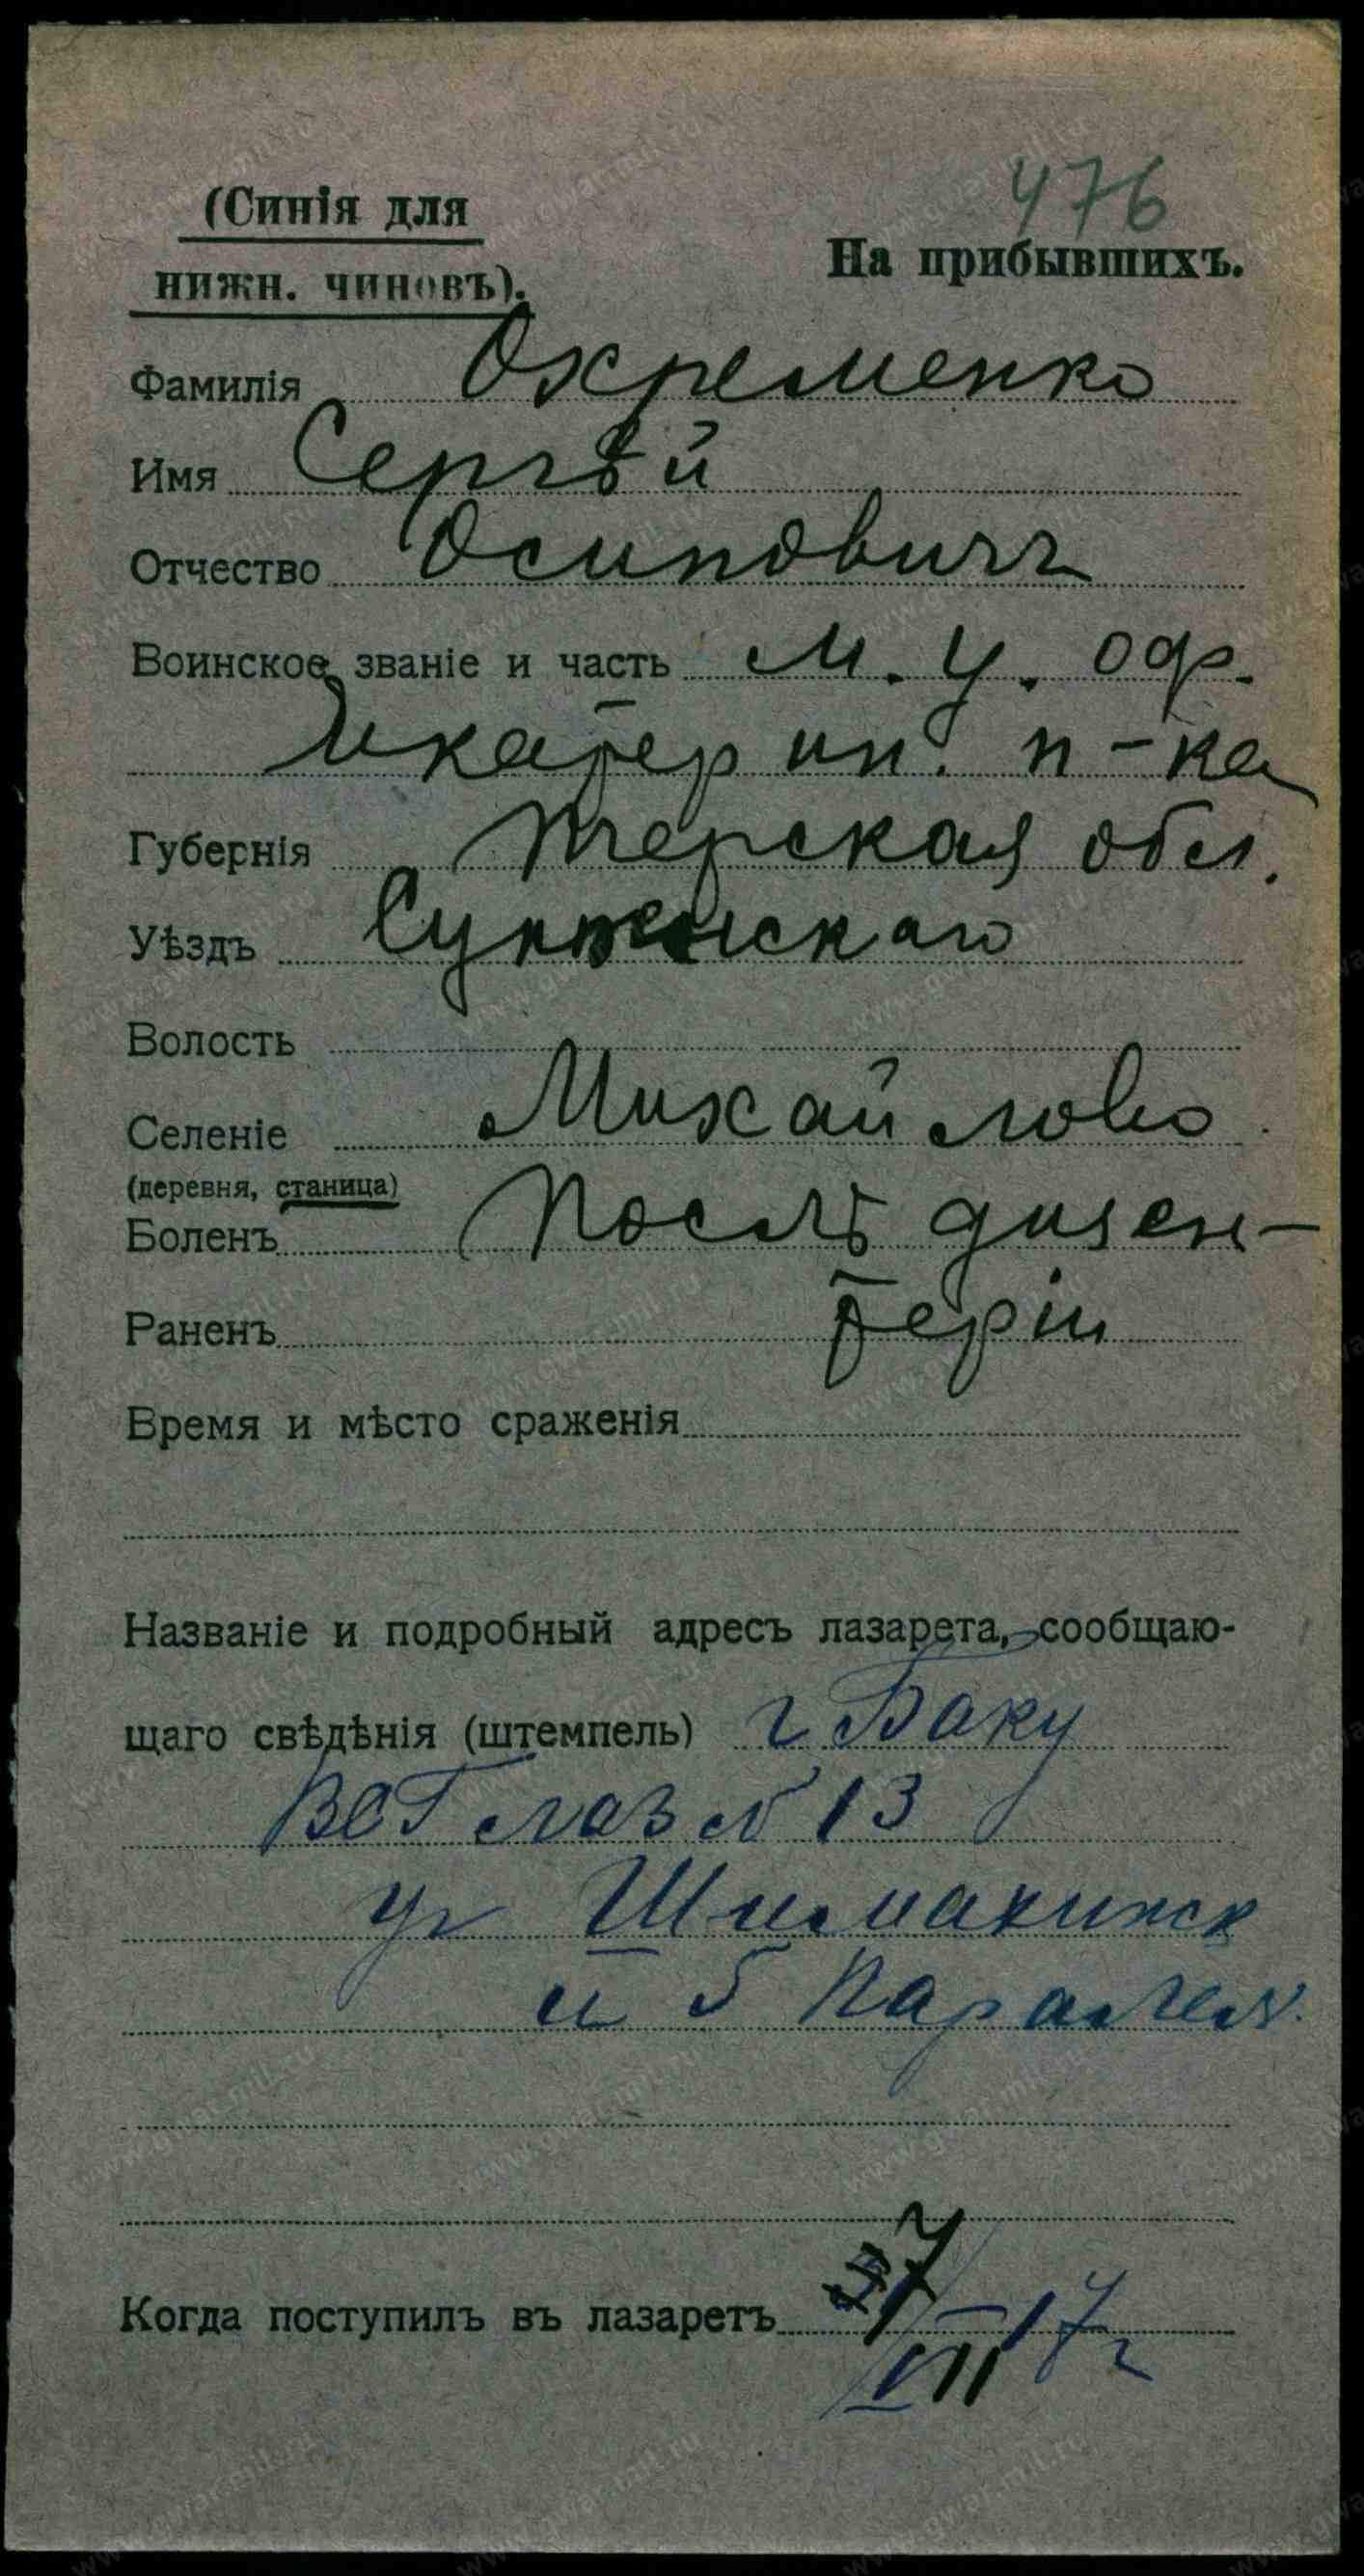 476
(Синія для
нижн. чиновъ).
На прибывшихъ.
Фамилія Охременко
Имя Сергѣй
Отчество Осиповичъ
Воинское званіе и часть м. у. оф.
Икатерин. п-ка
Губернія Терская обл.
Уѣздъ Сунженскаго
Волость
Селеніе Михайлово
(деревня, станица)
Боленъ Послѣ дизен-
Раненъ теріи
Время и мѣсто сраженія
Названіе и подробный адресъ лазарета, сообщаю-
щаго свѣдѣнія (штемпель) г Баку
ВСГ лаз № 13
уг Шимахинск
и 5 Паралел.
Когда поступилъ въ лазаретъ VII 17 г